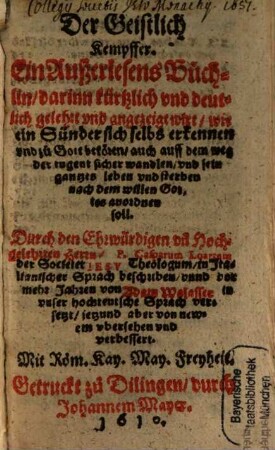 Collegij Societatis Jesu Monachij 1637.
Der Geistlich
Kempffer.
Ein Außerlesens Büch-
lin/ darinn kürtzlich vnd deut-
lich gelehrt vnd angezeigt wirt/ wie
ein Sünder sich selbs erkennen
vnd zů Gott bekören/ auch auff dem weg
der tugent sicher wandlen/ vnd sein
gantzes leben vnd sterben
nach dem willen Got-
tes anordnen
soll.
Durch den Ehrwürdigen vñ Hoch-
gelehrten Herrn P. Casparum Loartem
der Societet IESV Theologum/ in Ita-
lianischer Sprach beschriben/ vnnd vor
mehr Jahren von Adam Walasser in
vnser hochteutsche Sprach vers
setzt/ jetzund aber von new-
em vbersehen vnd
verbessert.
Mit Röm. Kay. May. Freyheit.
Getruckt zů Dilingen/ durch
Johannem Mayer.
1610.
Bayerische
Staatsbibliothek
München